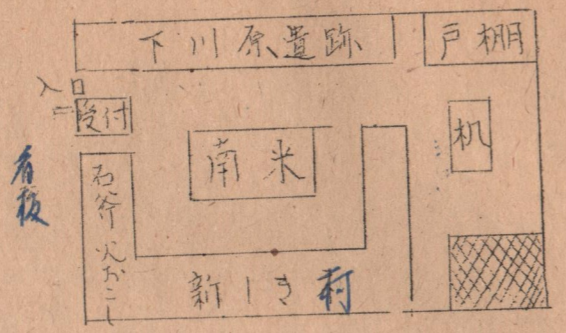 下川原遺跡
戸棚
入口
受付
机
南米
看板
石斧 火おこし
新しき村